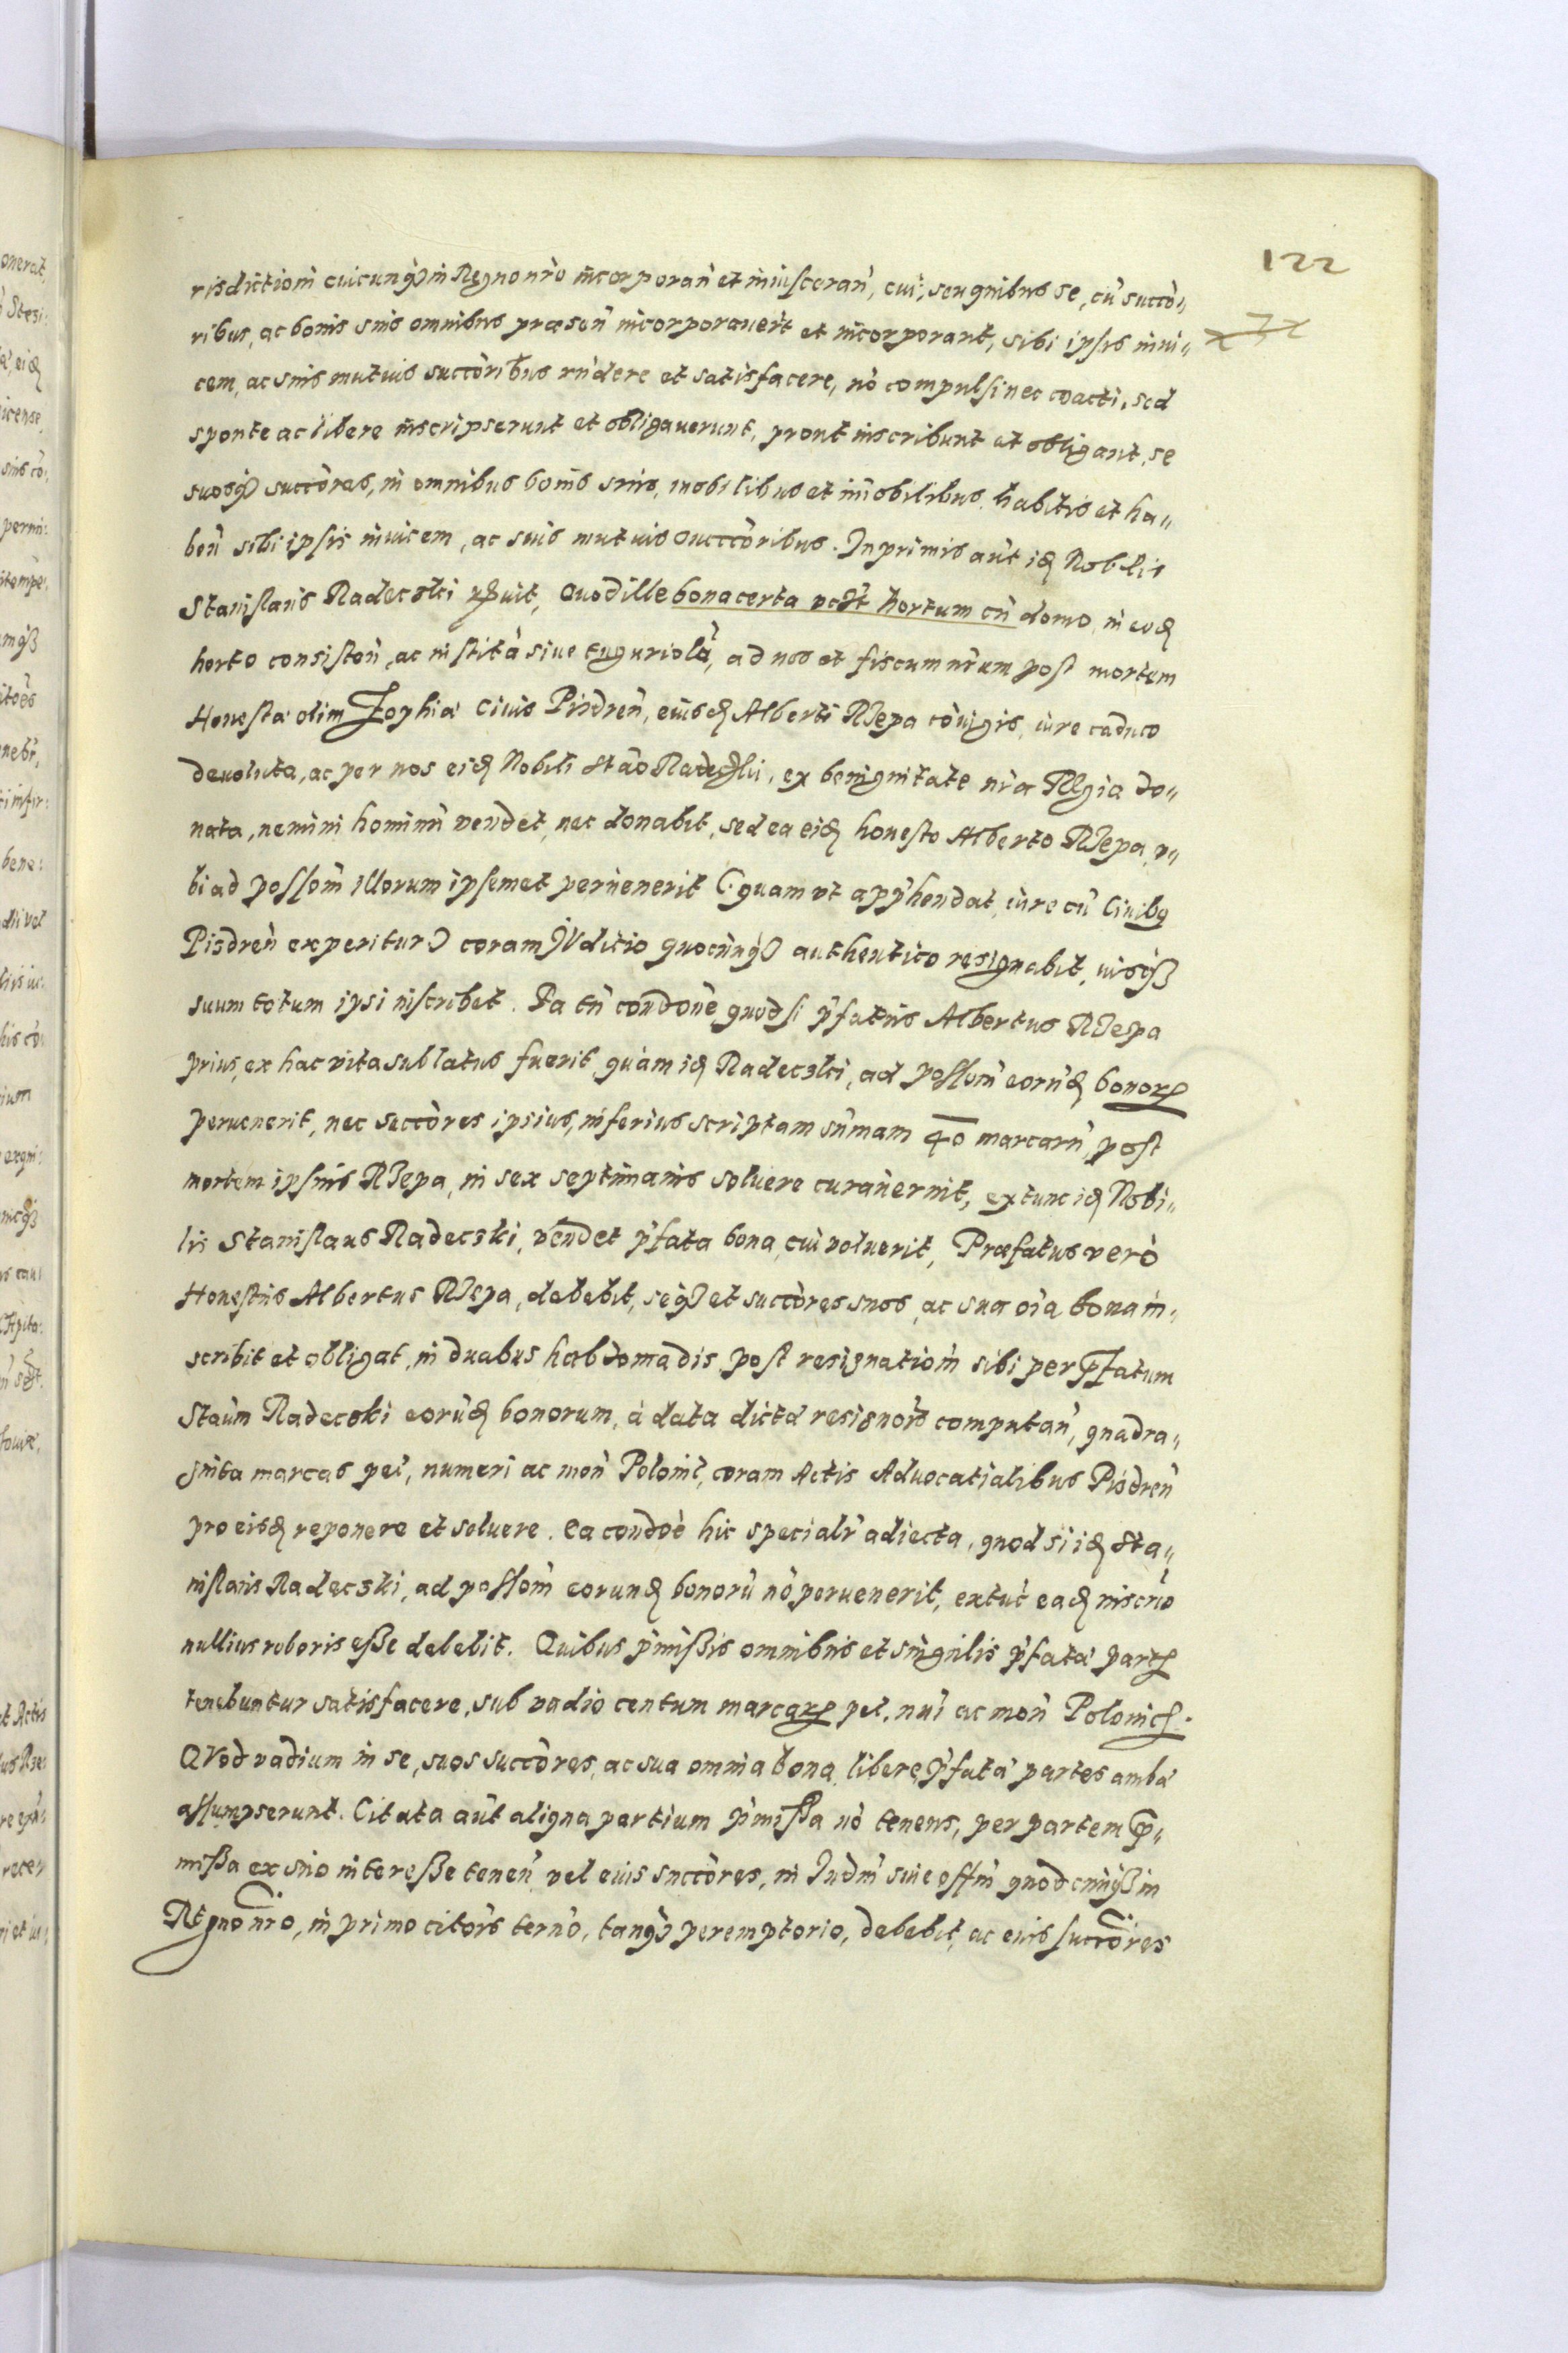 122
risdictioni cuicunq3 in Regno nr̃o incorporan̄ et inviscerań, cui, seu quibus se, cū succō„
ribus, ac bonis suis omnibus præsen̄ incorporaverūt et incorporant, sibi ipsis invi„
cem, ac suis mutuis succōribus rn̄dere et satisfacere, nō compulsi nec coacti, sed
sponte ac libere inscripserunt et obligaverunt, prout inscribunt et obligant, se
suosq3 succōres, in omnibus bonis suis, mobilibus et im̄obilibus, habitis et ha„
ben̄ sibi ipsis invicem, ac suis mutuis succcōribus. Inprimis aūt id Nobilis
Stanislaus Radeczki, Quod ille bona certa hortum cū domo, in eod
horto consisteñ, ac sive tuguriolā, ad nos et fiscum nr̃um post mortem
Honestæ olim Zophiæ Civis Pisdreń, eiusd Alberti Rzepa cōiugis, iure caduco
devoluta, ac per nos eid Nobili Stāo Radeczki, ex benignitate nr̃a Regia do„
nata, nemini hominū vendet, nec donabit, sed ea eid honesto Alberto Rzepa, v„
bi ad possōm illorum ipsemet pervenerit (quam vt app̄hendat, iure cū Civibq
Pisdreń experitur) coram IVditio quocūnq3 authentico resignabit, iusq3
suum totum ipsi inscribet. Ita tn̄ condōne, quod si p̄fatus Albertus Rzepa
prius, ex hac vita sublatus fuerit, quam id Radeczki, ad possōm eorūd bonorȝ
pervenerit, nec seccōres ipsius, inferius scriptam sum̄am 40 marcarū, post
mortem ipsius Rzepa, in sex septimanis solvere curaverint, extunc id Nobi„
lis Stanislaus Radeczki, vendet p̄fata bona, cui voluerit, Præfatus verò
Honestus Albertus Rzepa, debebit, seq3 et succōres suos, ac sua oīa bona in„
scribit et obligat, in duabus hebdomadis post resignatiōm sibi per p̄fatum
Staūm Radeczki eorūd bonorum, à data dictæ resignōis computań, quadra„
ginta marcas pec, numeri ac moń Polonic, coram Actis Advocatialibus Pisdreń
pro eisd reponere et solvere. Ea condōe hic specialr̃ adiecta, quod si id Sta„
nislaus Radeczki, ad possōm eorund bonorū nō pervenerit, extūc ead inscr̃io
nullius roboris eße debebit. Quibus p̄mißis omnibus et singulis p̄fatæ partȩ
tenebuntur satisfacere, sub vadio centum marcarȝ pec, nuī ac moń Polonicȩ.
QVod vadium in se, suos succōres, ac sua omnia bona, libere p̄fatæ partes ambæ
assumpserunt. Citata aūt aliqua partium p̄mißa nō tenens, per partem p̄„
mißa ex suo intereße teneń vel eius succōres, in Iudm̄ sive offm̄ quodcunq3 in
Regno nr̃o, in primo citōis termō, tanq3 peremptorio, debebit, ac eius succōres